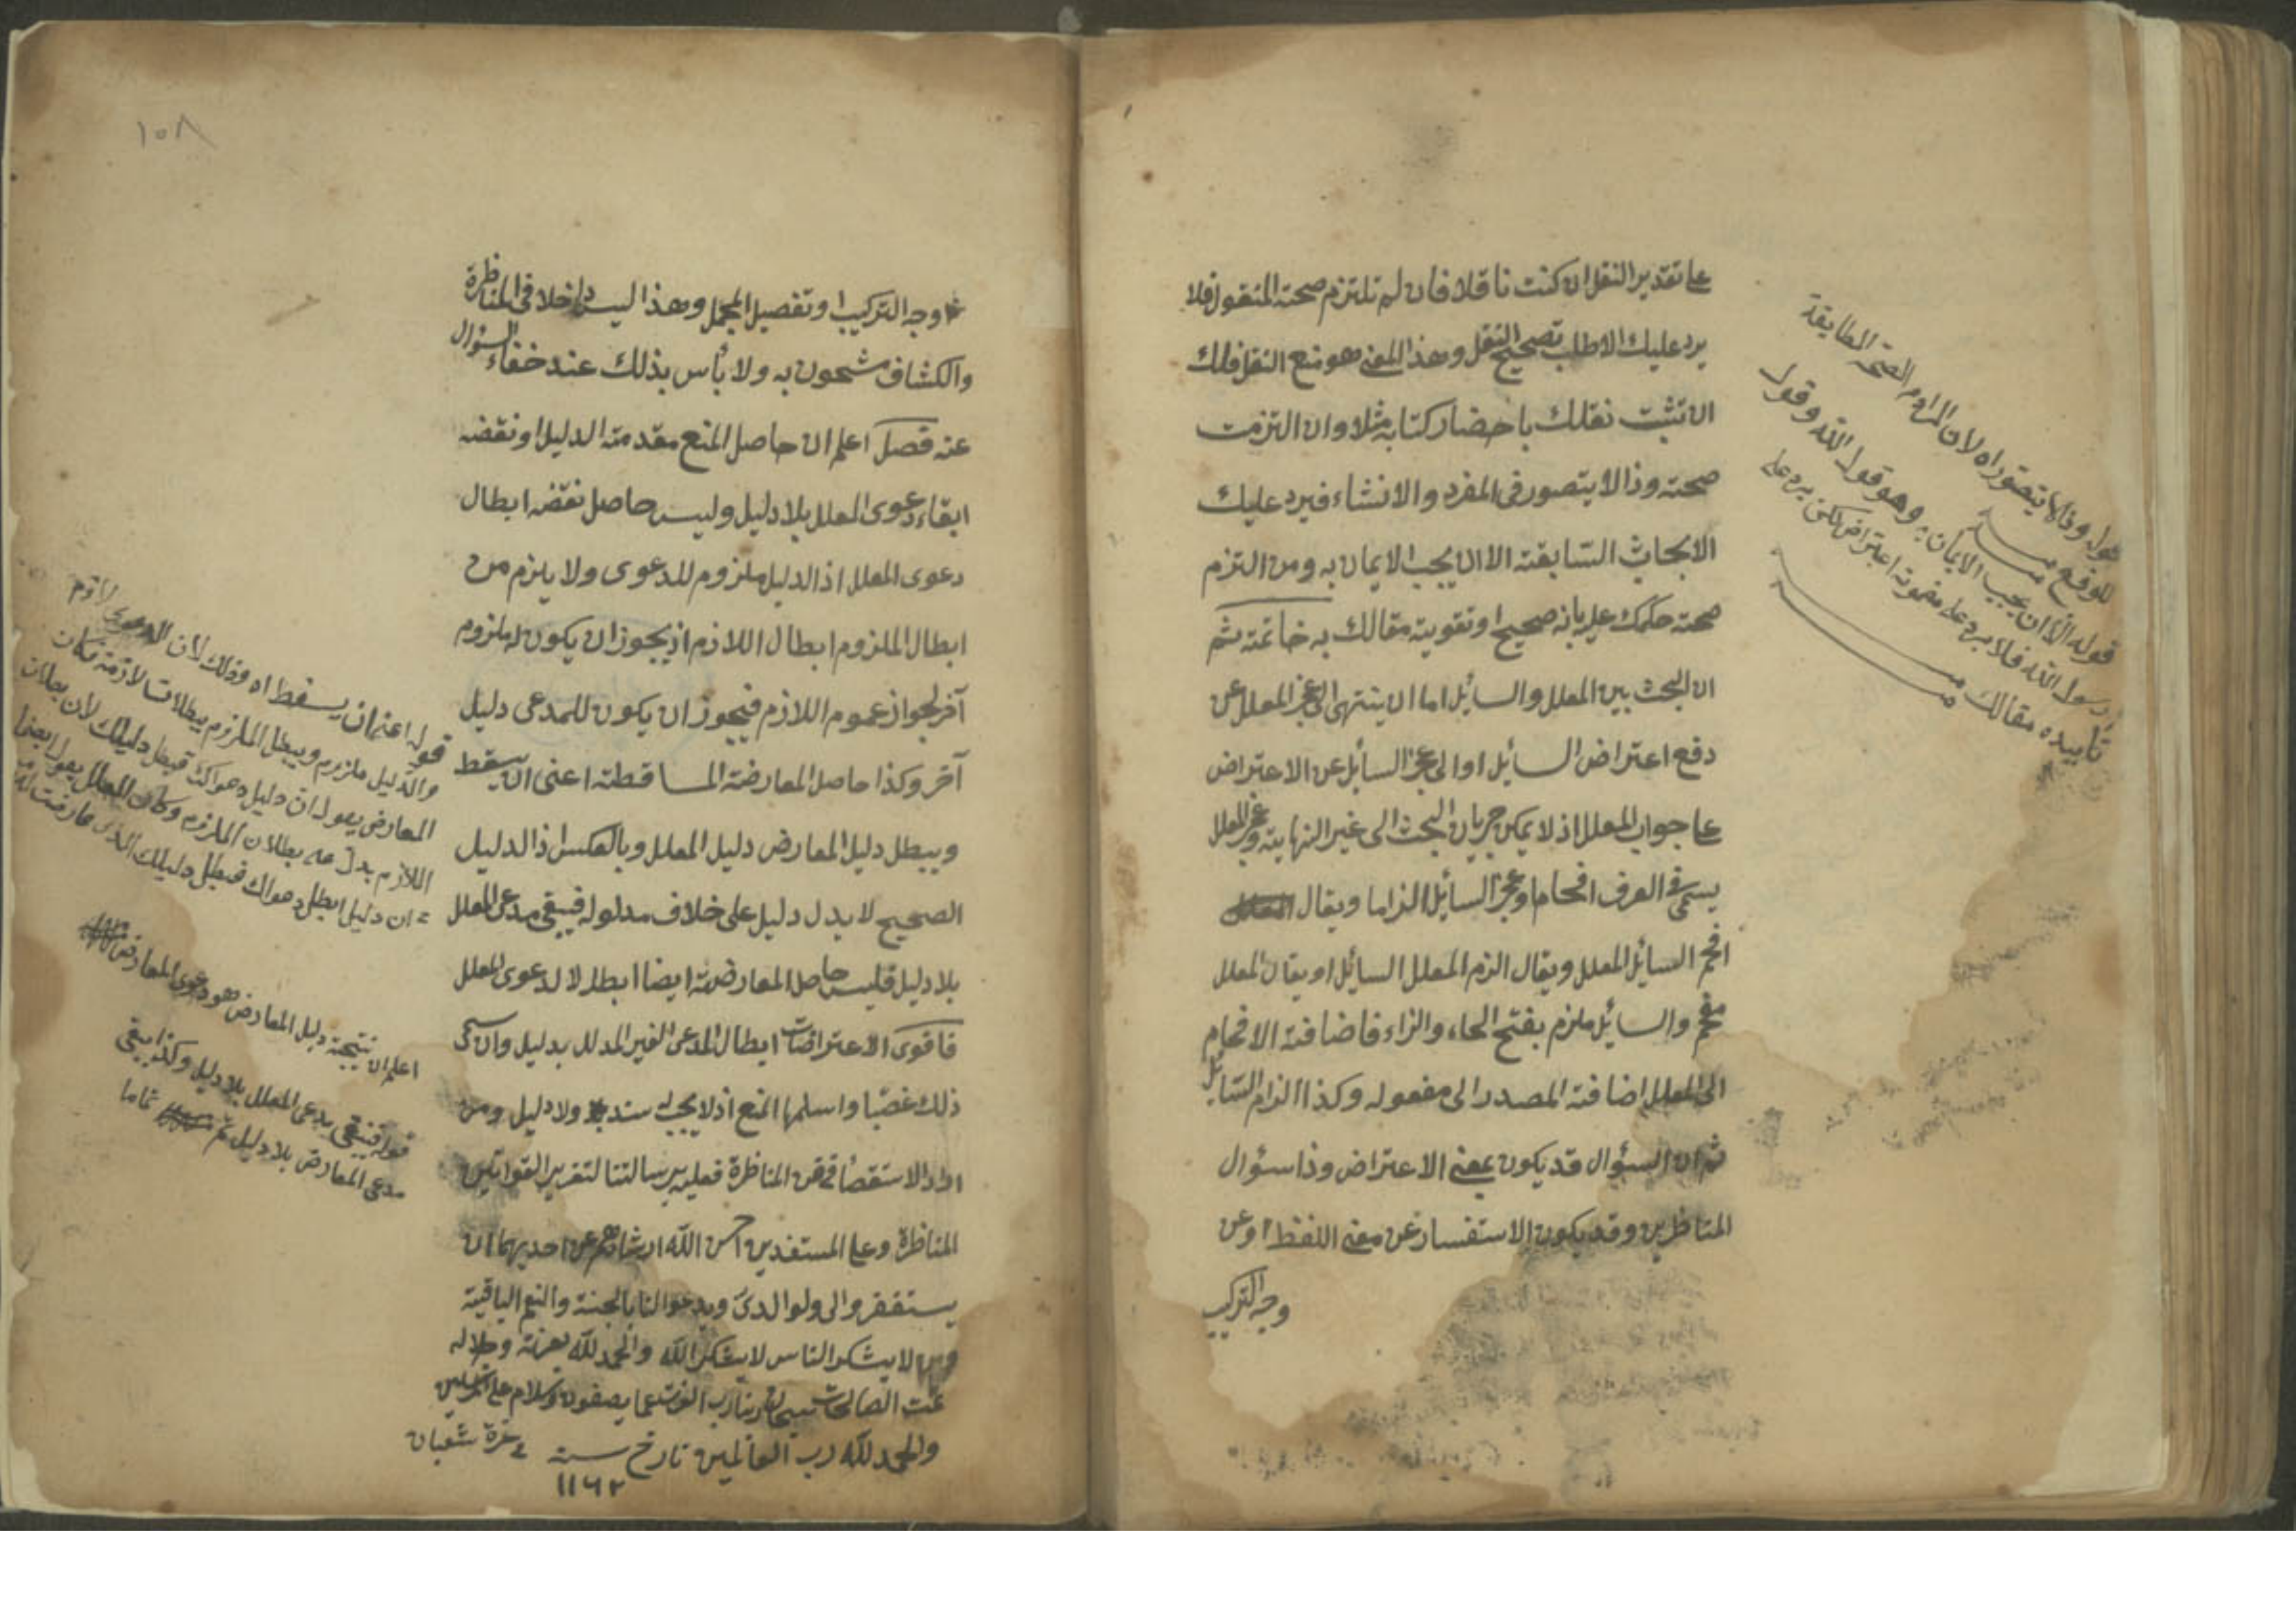 على تقدير النقل ان كنت ناقلا فان لم تلتزم صحة المنقول فلا
يرد عليك الا طلب تصحيح النقل وهذا المعنى هو منع النقل فلك
ان تثبت نقلك باحضار كتابه مثلا وان التزمت
صحته وذا لا يتصور في المفرد والانشاء فيرد عليك
الابحاث السابقة الا ان يجب الايمان به ومن التزم
صحته حكمك عليه بانه صحيح او تقوية مقالك به خاتمة ثم
ان البحث بين المعلل والسائل اما ان ينتهى الى عجز المعلل عن
دفع اعتراض السائل او الى عجز السائل عن الاعتراض
على جواب المعلل اذ لا يمكن جريان البحث الى غير النهاية وعجز المعلل
يسمى في العرف افحاما وعجز السائل الزاما ويقال
افحم السائل المعلل ويقال الزم المعلل السائل او يقال المعلل
مفحم والسائل ملزم بفتح الحاء والزاء فاضافة الافحام
الى المعلل اضافة المصدر الى مفعوله وكذا الزام السائل
ثم ان السؤال قد يكون بمعنى الاعتراض وذا سؤال
المناظرين وقد يكون الاستفسار عن معنى اللفظ او عن
وجه التركيب
قوله وذا لا يتصور اه لان المراد من الصحة المطابقة
للواقع
قوله الا ان يجب الايمان به وهو قول الله وقول
رسول الله فلا يرد على مضمونه اعتراض لكن يرد على
تأييده مقالك
١٠٨
وجه التركيب او تفصيل المجمل وهذا ليس داخلا في المناظرة
والكشاف مشحون به ولا بأس بذلك عند خفاء السؤال
عنه فصل اعلم ان حاصل المنع مقدمة الدليل او نقضه
ابقاء دعوى المعلل بلا دليل وليس حاصل نقضه ابطال
دعوى المعلل اذ الدليل ملزوم للدعوى ولا يلزم من
ابطال الملزوم ابطال اللازم اذ يجوز ان يكون له ملزوم
آخر لجواز عموم اللازم فيجوز ان يكون للمدعى دليل
آخر وكذا حاصل المعارضة المساقطة اعنى ان يسقط
ويبطل دليل المعارض دليل المعلل وبالعكس اذ الدليل
الصحيح لا يدل دليل على خلاف مدلوله فيبقى مدعى المعلل
بلا دليل فليس حاصل المعارضة ايضا ابطالا لدعوى المعلل
فاقوى الاعتراضات ابطال المدعى الغير المدلل بدليل وان سمى
ذلك غصبا واسلمها المنع اذ لا يجب له سند ولا دليل ومن
اراد الاستقصاء في فن المناظرة فعليه برسالتنا لتقرير القوانين
المناظرة وعلى المستفيدين احسن الله ارشادهم عن احديهما ان
يستغفروا لى ولوالدى ويدعوا لنا بالجنة والنعم الباقية
ومن لا يشكر الناس لا يشكر الله والحمد لله بعزته وجلاله
تمت الصالحات سبحان ربنا رب العزت عما يصفون وسلام على المرسلين
والحمد لله رب العالمين تاريخ سنة في غرة شعبان
١١٦٢
قوله اعنى ان يسقط اه وذلك لان الدعوى لازم
والدليل ملزوم ويبطل الملزوم ببطلان لازمه فكان
المعارض يقول ان دليلى دعواك فبطل دليلك لان بطلان
اللازم يدل على بطلان الملزوم وكان المعلل يقول ايضا
ان دليلى ابطل دعواك فبطل دليلك الذى عارضت
اعلم ان نتيجة دليل المعارض هو دعوى المعارض
قوله فيبقى مدعى المعلل بلا دليل وكذا يبقى
مدعى المعارض بلا دليل تم تماما